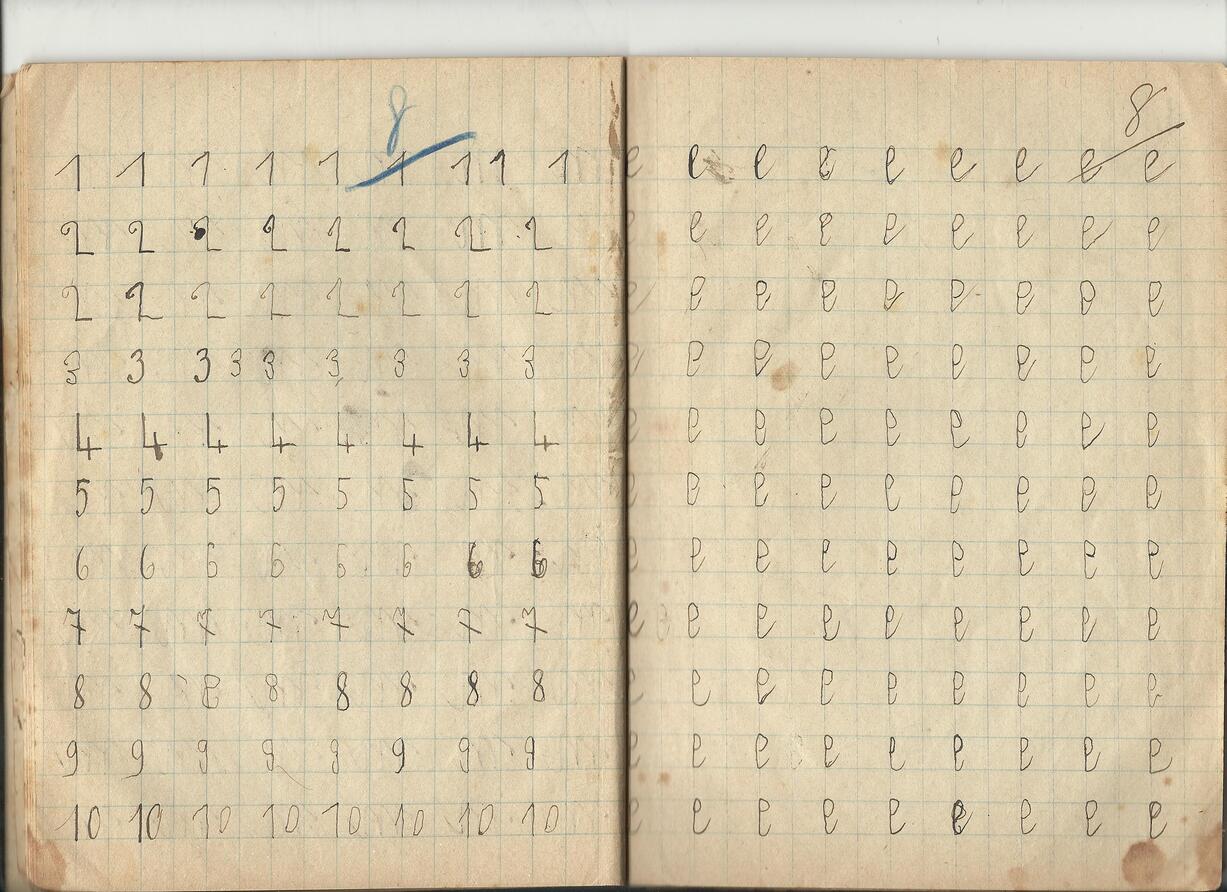 8
1 1 1 1 1 1 1 1 1
2 2 2 2 2 2 2 2
2 2 2 2 2 2 2 2
3 3 3 3 3 3 3 3 3
4 4 4 4 4 4 4 4
5 5 5 5 5 5 5 5
6 6 6 6 6 6 6 6
7 7 7 7 7 7 7 7
8 8 8 8 8 8 8 8
9 9 9 9 9 9 9 9
10 10 10 10 10 10 10 10
8
e e e e e e e e e
e e e e e e e e e
e e e e e e e e e
e e e e e e e e e
e e e e e e e e e
e e e e e e e e e
e e e e e e e e e
e e e e e e e e e
e e e e e e e e e
e e e e e e e e e
e e e e e e e e e